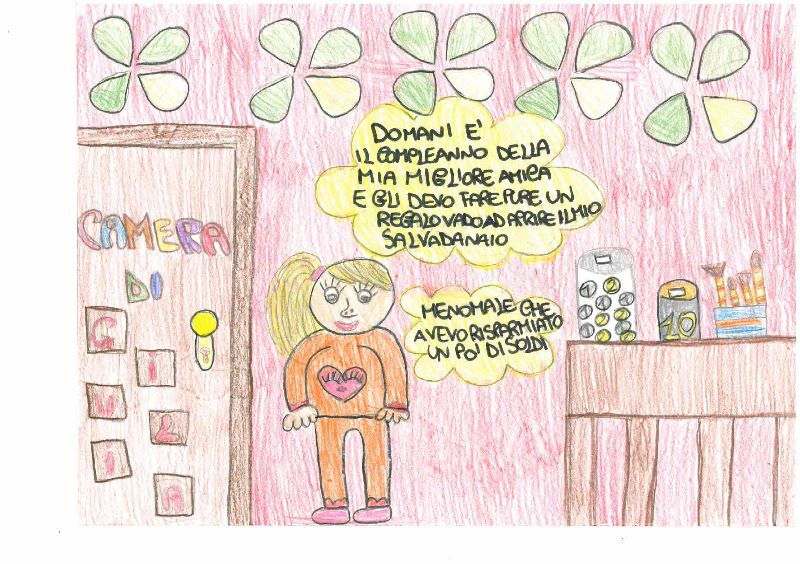 DOMANI E'
IL COMPLEANNO DELLA
MIA MIGLIORE AMICA
E GLI DEVO FARE PURE UN
REGALO VADO AD APRIRE IL MIO
SALVADANAIO
CAMERA
DI
GIULIA
MENOMALE CHE
AVEVO RISPARMIATO
UN PO' DI SOLDI
1 2
10